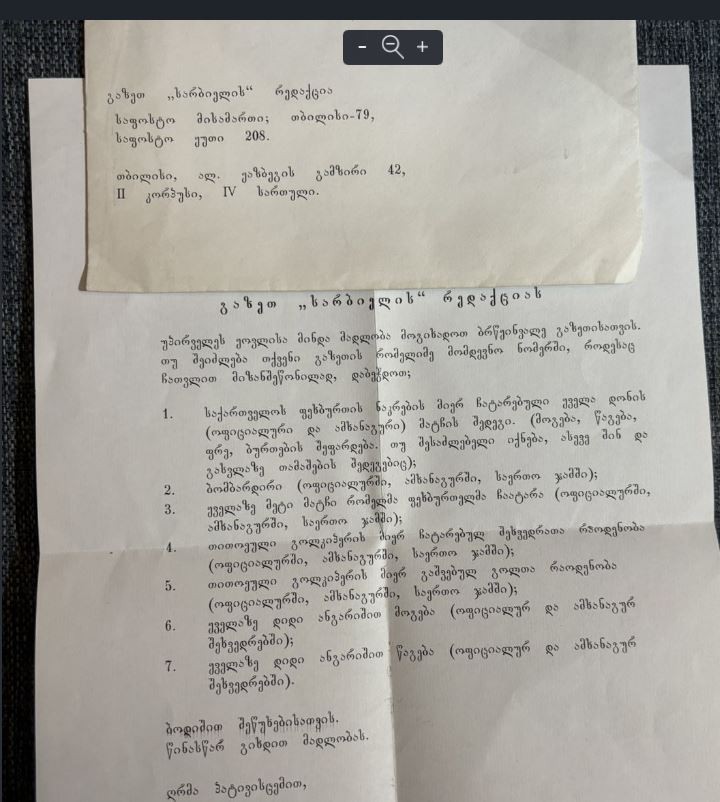 გაზეთ „სარბიელის“ რედაქცია
საფოსტო მისამართი; თბილისი-79,
საფოსტო ყუთი 208.
თბილისი, ალ. ყაზბეგის გამზირი 42,
II კორპუსი, IV სართული.
გაზეთ „სარბიელის“ რედაქციას
უპირველეს ყოვლისა მინდა მადლობა მოგიხადოთ ბრწყინვალე გაზეთისათვის.
თუ შეიძლება თქვენი გაზეთის რომელიმე მომდევნო ნომერში, როდესაც
ჩათვლით მიზანშეწონილად, დაბეჭდოთ;
1. საქართველოს ფეხბურთის ნაკრების მიერ ჩატარებული ყველა დონის
(ოფიციალური და ამხანაგური) მატჩის შედეგი. (მოგება, წაგება,
ფრე, ბურთების შეფარდება. თუ შესაძლებელი იქნება, ასევე შინ და
გასვლაზე თამაშების შედეგებიც);
2. ბომბარდირი (ოფიციალურში, ამხანაგურში, საერთო ჯამში);
3. ყველაზე მეტი მატჩი რომელმა ფეხბურთელმა ჩაატარა (ოფიციალურში,
ამხანაგურში, საერთო ჯამში);
4. თითოეული გოლკიპერის მიერ ჩატარებულ შეხვედრათა რაოდენობა
(ოფიციალურში, ამხანაგურში, საერთო ჯამში);
5. თითოეული გოლკიპერის მიერ გაშვებულ გოლთა რაოდენობა
(ოფიციალურში, ამხანაგურში, საერთო ჯამში);
6. ყველაზე დიდი ანგარიშით მოგება (ოფიციალურ და ამხანაგურ
შეხვედრებში);
7. ყველაზე დიდი ანგარიშით წაგება (ოფიციალურ და ამხანაგურ
შეხვედრებში).
ბოდიშით შეწუხებისათვის.
წინასწარ გიხდით მადლობას.
ღრმა პატივისცემით,